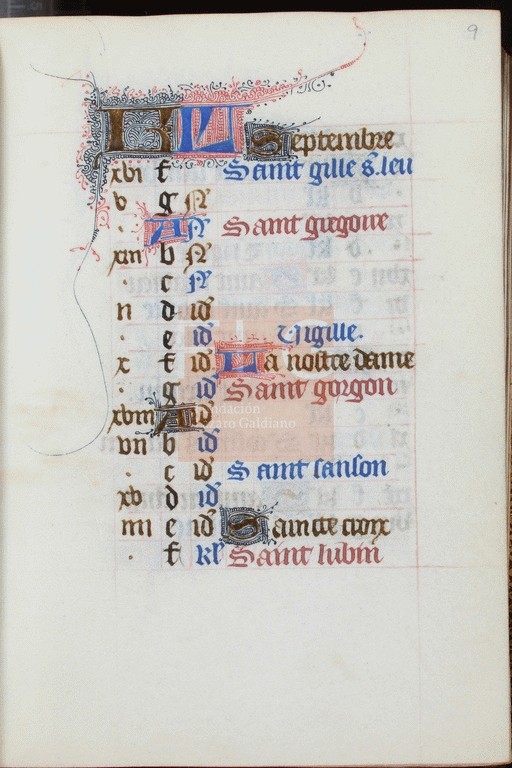 9
KL Septembre
xvi f Saint gille s. leu
v g N
A N Saint gregoire
xiii b N
c N
ii d id
e id Vigille.
x f id La nostre dame
g id Saint gorgon
xviii A id
vii b id
c id Saint sanson
xv d id
iiii e id Saincte croix
f kl Saint lubin
Fundación
Lázaro Galdiano